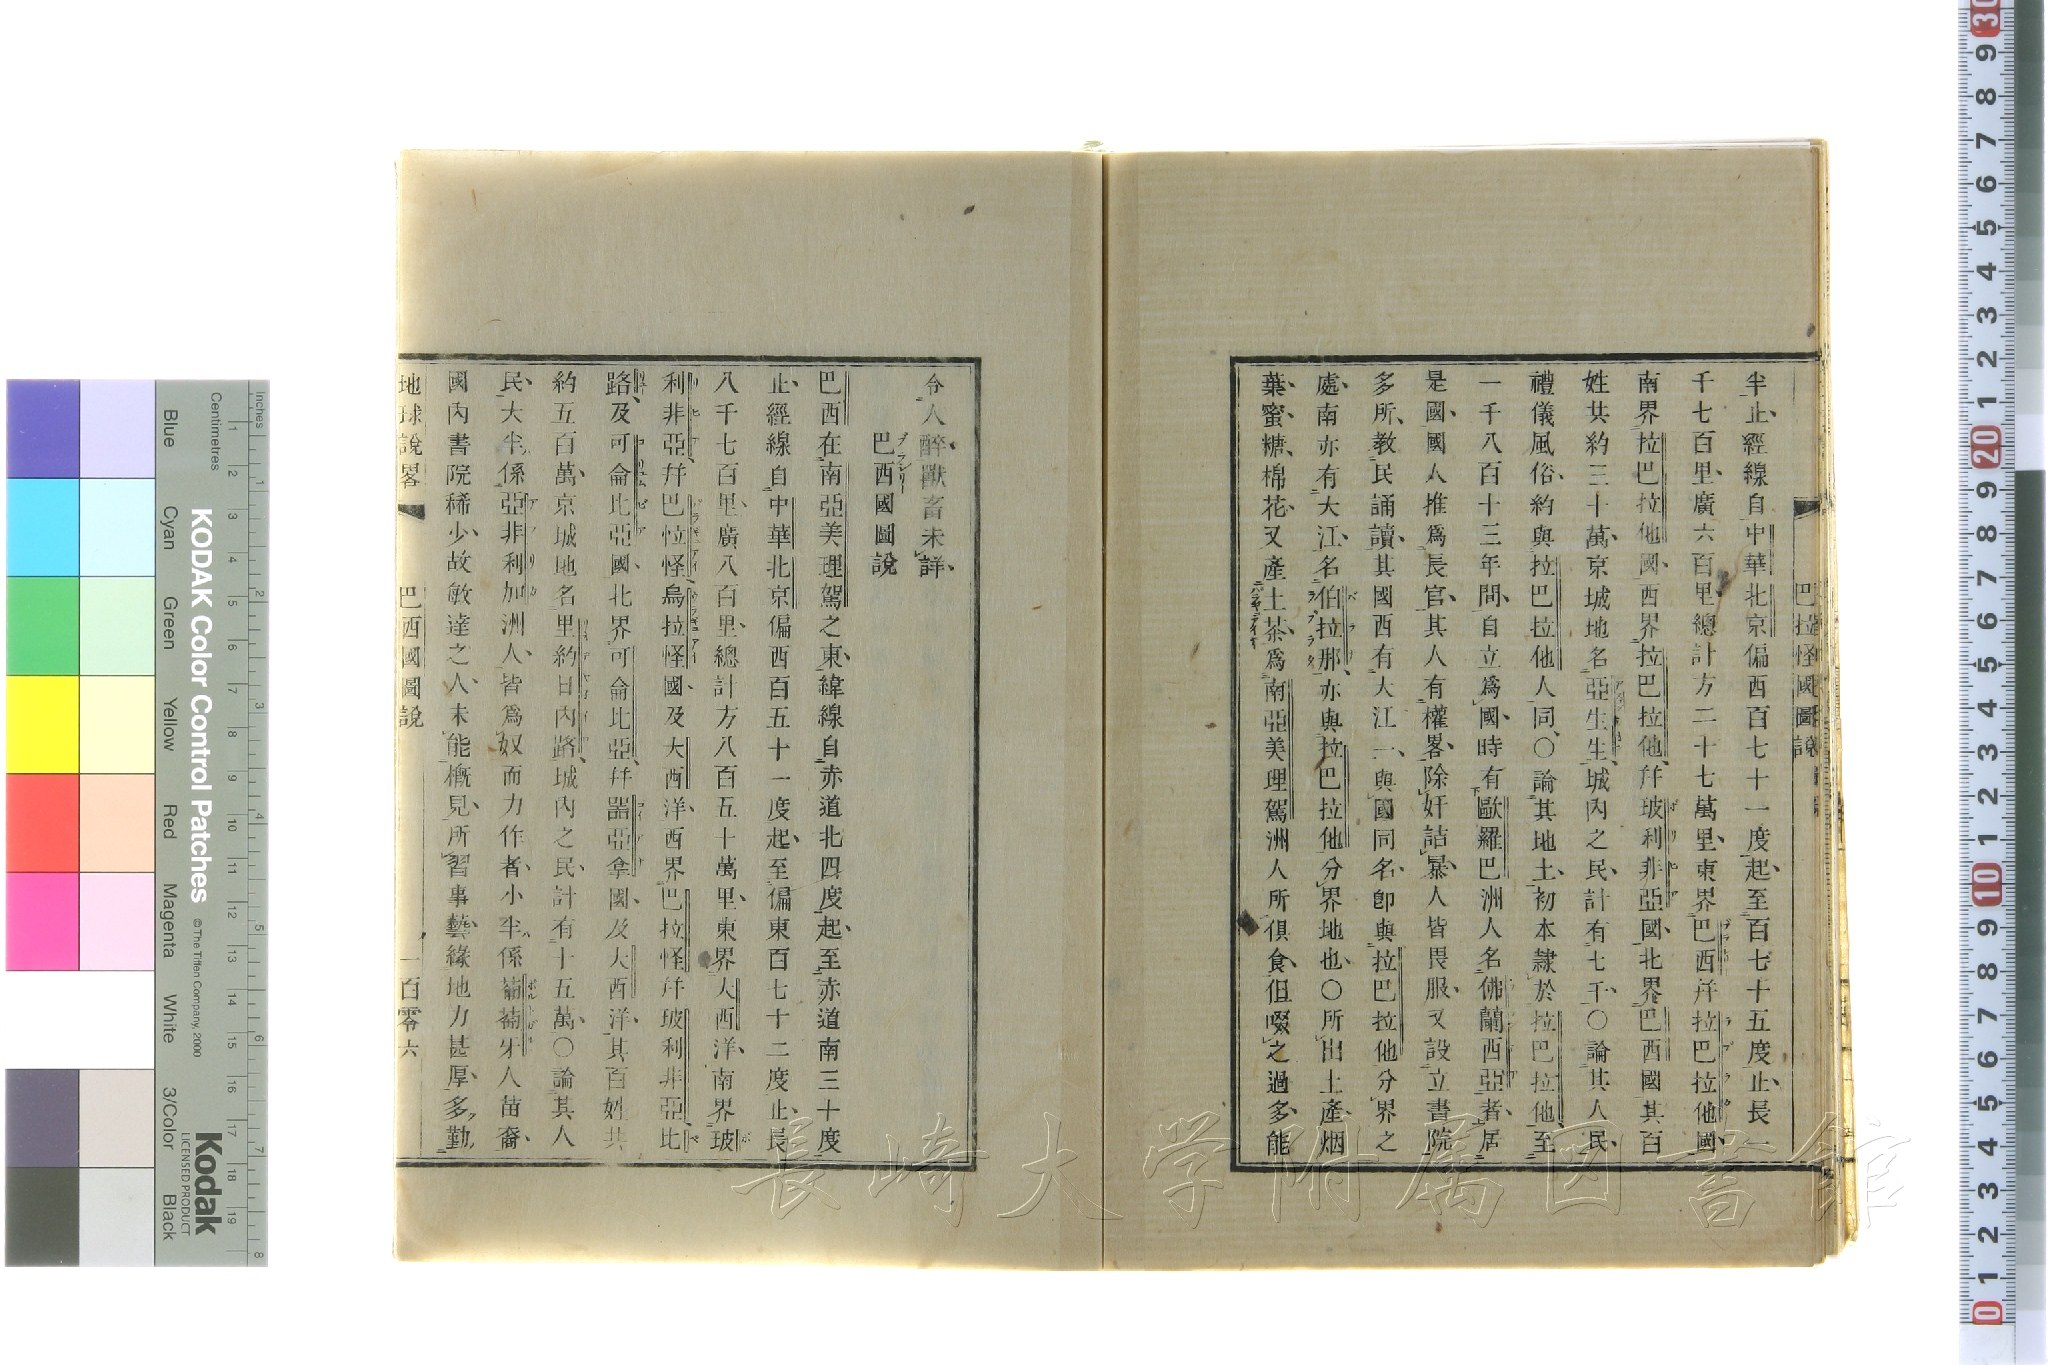 巴拉怪國圖說
半止經線自中華北京偏西百七十一度起至百七十五度止長一
千七百里廣六百里總計方二十七萬里東界巴西幷拉巴拉他國
南界拉巴拉他國西界拉巴拉他幷玻利非亞國北界巴西國其百
姓共約三十萬京城地名亞生生城內之民計有七千〇論其人民
禮儀風俗約與拉巴拉他人同〇論其地土初本隸於拉巴拉他至
一千八百十三年間自立爲國時有歐羅巴洲人名佛蘭西亞者居
是國國人推爲長官其人有權畧除奸詰暴人皆畏服又設立書院
多所教民誦讀其國西有大江一與國同名卽與拉巴拉他分界之
處南亦有大江名伯拉那亦與拉巴拉他分界地也〇所出土產烟
葉蜜糖棉花又產土茶爲南亞美理駕洲人所俱食但啜之過多能
令人醉獸畜未詳
巴西國圖說
巴西在南亞美理駕之東緯線自赤道北四度起至赤道南三十度
止經線自中華北京偏西百五十一度起至偏東百七十二度止長
八千七百里廣八百里總計方八百五十萬里東界大西洋南界玻
利非亞幷巴拉怪烏拉怪國及大西洋西界巴拉怪幷玻利非亞比
路及可侖比亞國北界可侖比亞幷器亞拿國及大西洋其百姓共
約五百萬京城地名里約日內路城內之民計有十五萬〇論其人
民大半係亞非利加洲人皆爲奴而力作者小半係葡萄牙人苗裔
國內書院稀少故敏達之人未能槪見所習事藝緣地力甚厚多勤
地球說畧 巴西國圖說 一百零六
長崎大学附属図書館
KODAK Color Control Patches
© The Tiffen Company, 2000
Kodak
LICENSED PRODUCT
Inches
Centimetres
Blue
Cyan
Green
Yellow
Red
Magenta
White
3/Color
Black